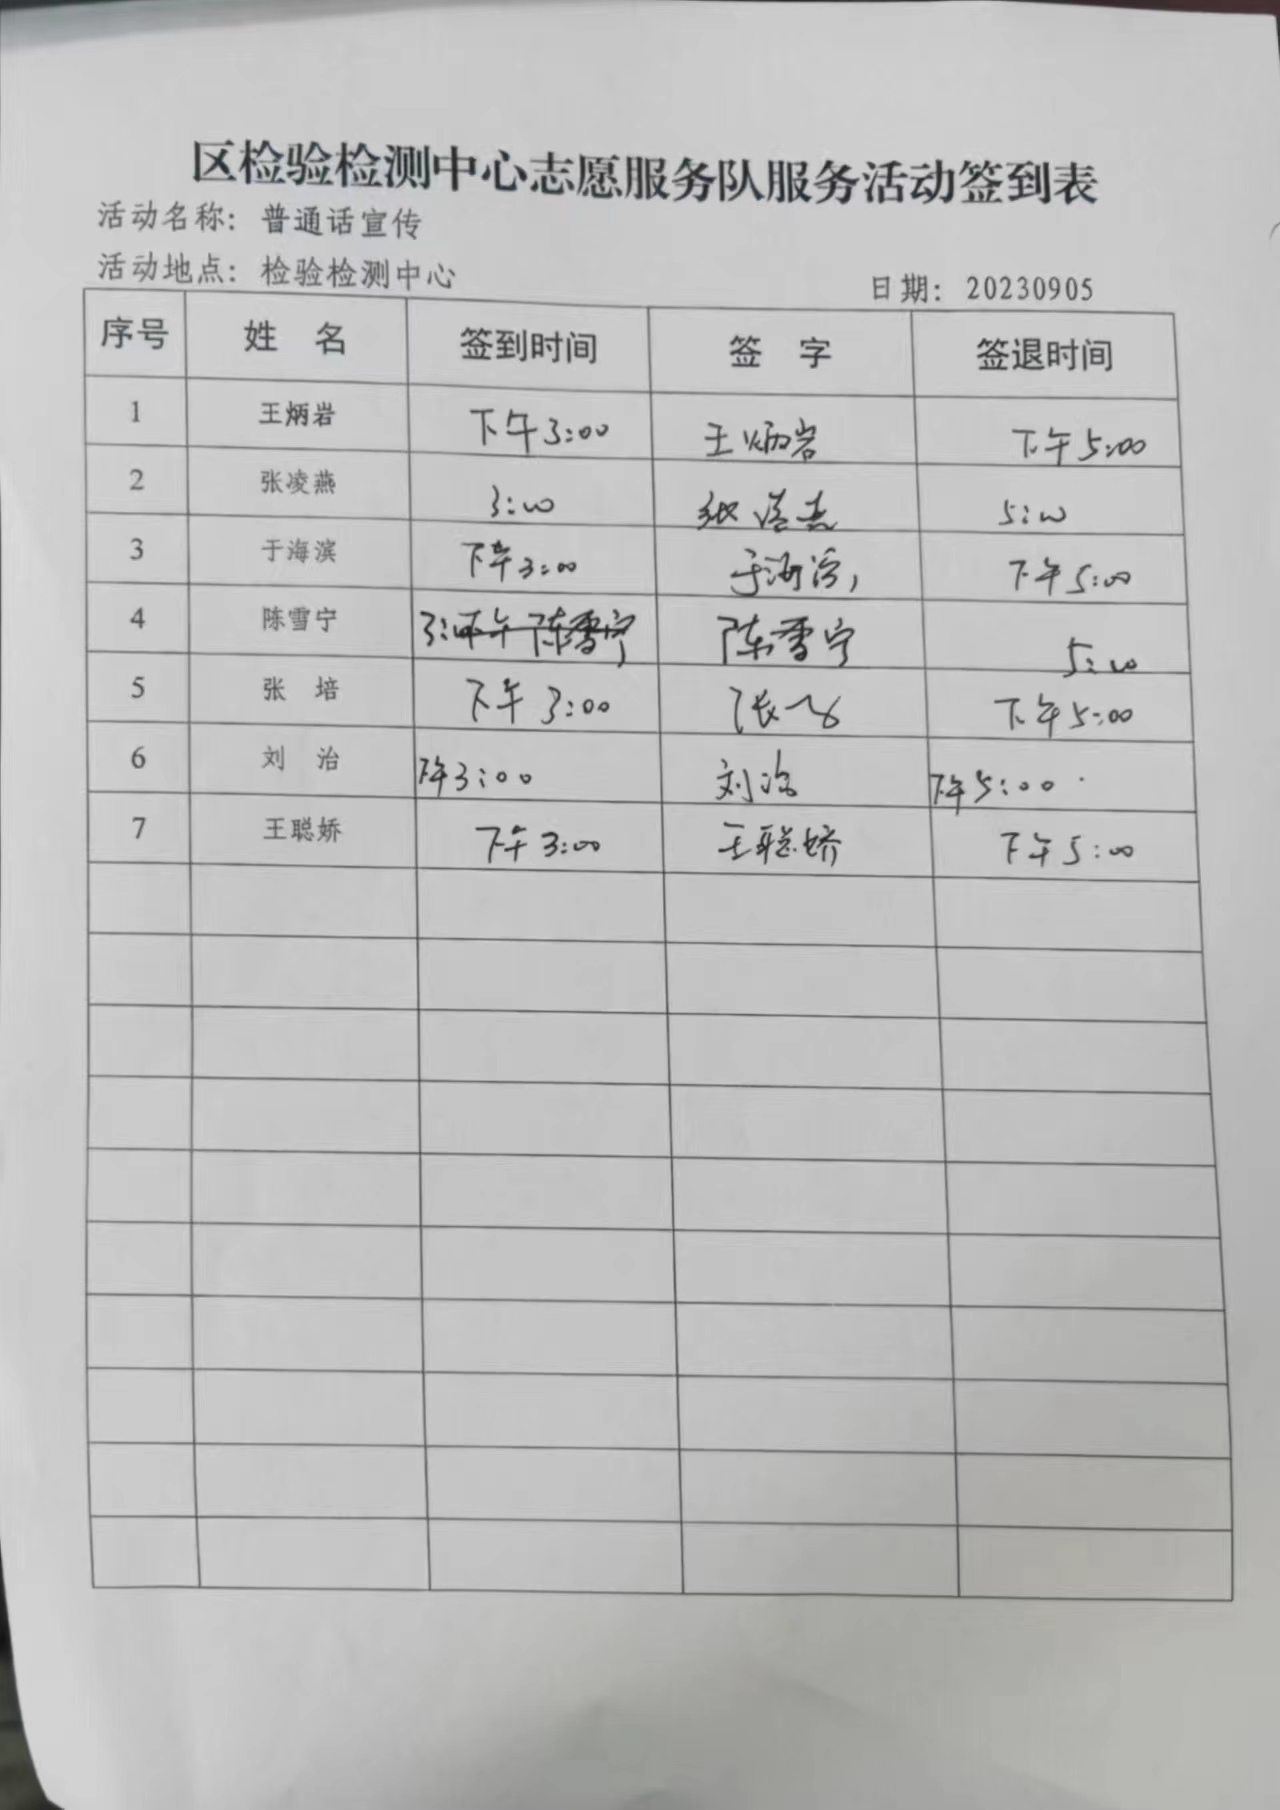 区检验检测中心志愿服务队服务活动签到表
活动名称：普通话宣传
活动地点：检验检测中心 日期：20230905
序号 姓 名 签到时间 签 字 签退时间
1 王炳岩 下午3:00 王炳岩 下午5:00
2 张凌燕 3:00 张凌燕 5:00
3 于海滨 下午3:00 于海滨 下午5:00
4 陈雪宁 3:00 陈雪宁 5:00
5 张 培 下午3:00 张 下午5:00
6 刘 治 下午3:00 刘治 下午5:00
7 王聪娇 下午3:00 王聪娇 下午5:00